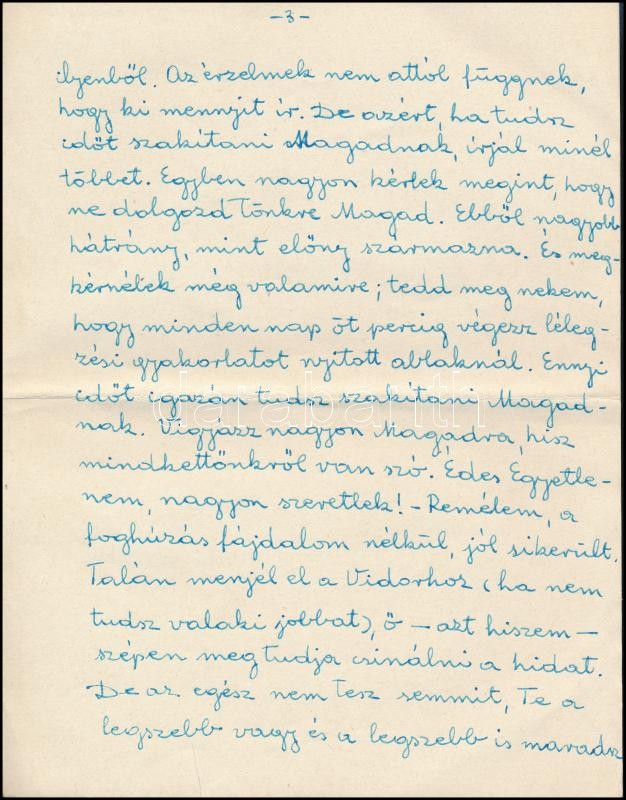 -3-
ilyenből. Az érzelmek nem attól függnek,
hogy ki mennyit ír. De azért, ha tudsz
időt szakítani Magadnak, írjál minél
többet. Egyben nagyon kérlek megint, hogy
ne dolgozd Tönkre Magad. Ebből nagyobb
hátrány, mint előny származna. És meg-
kérnélek még valamire; tedd meg nekem,
hogy minden nap öt percig végezz léleg-
zési gyakorlatot nyitott ablaknál. Ennyi
időt igazán tudsz szakítani Magad-
nak. Vigyázz nagyon Magadra, hisz
mindkettőnkről van szó. Édes Egyetle-
nem, nagyon szeretlek! - Remélem, a
foghúzás fájdalom nélkül, jól sikerült.
Talán menjél el a Vidorhoz (ha nem
tudsz valaki jobbat), ő - azt hiszem -
szépen meg tudja csinálni a hidat.
De az egész nem tesz semmit, Te a
legszebb vagy és a legszebb is maradsz
darabanth